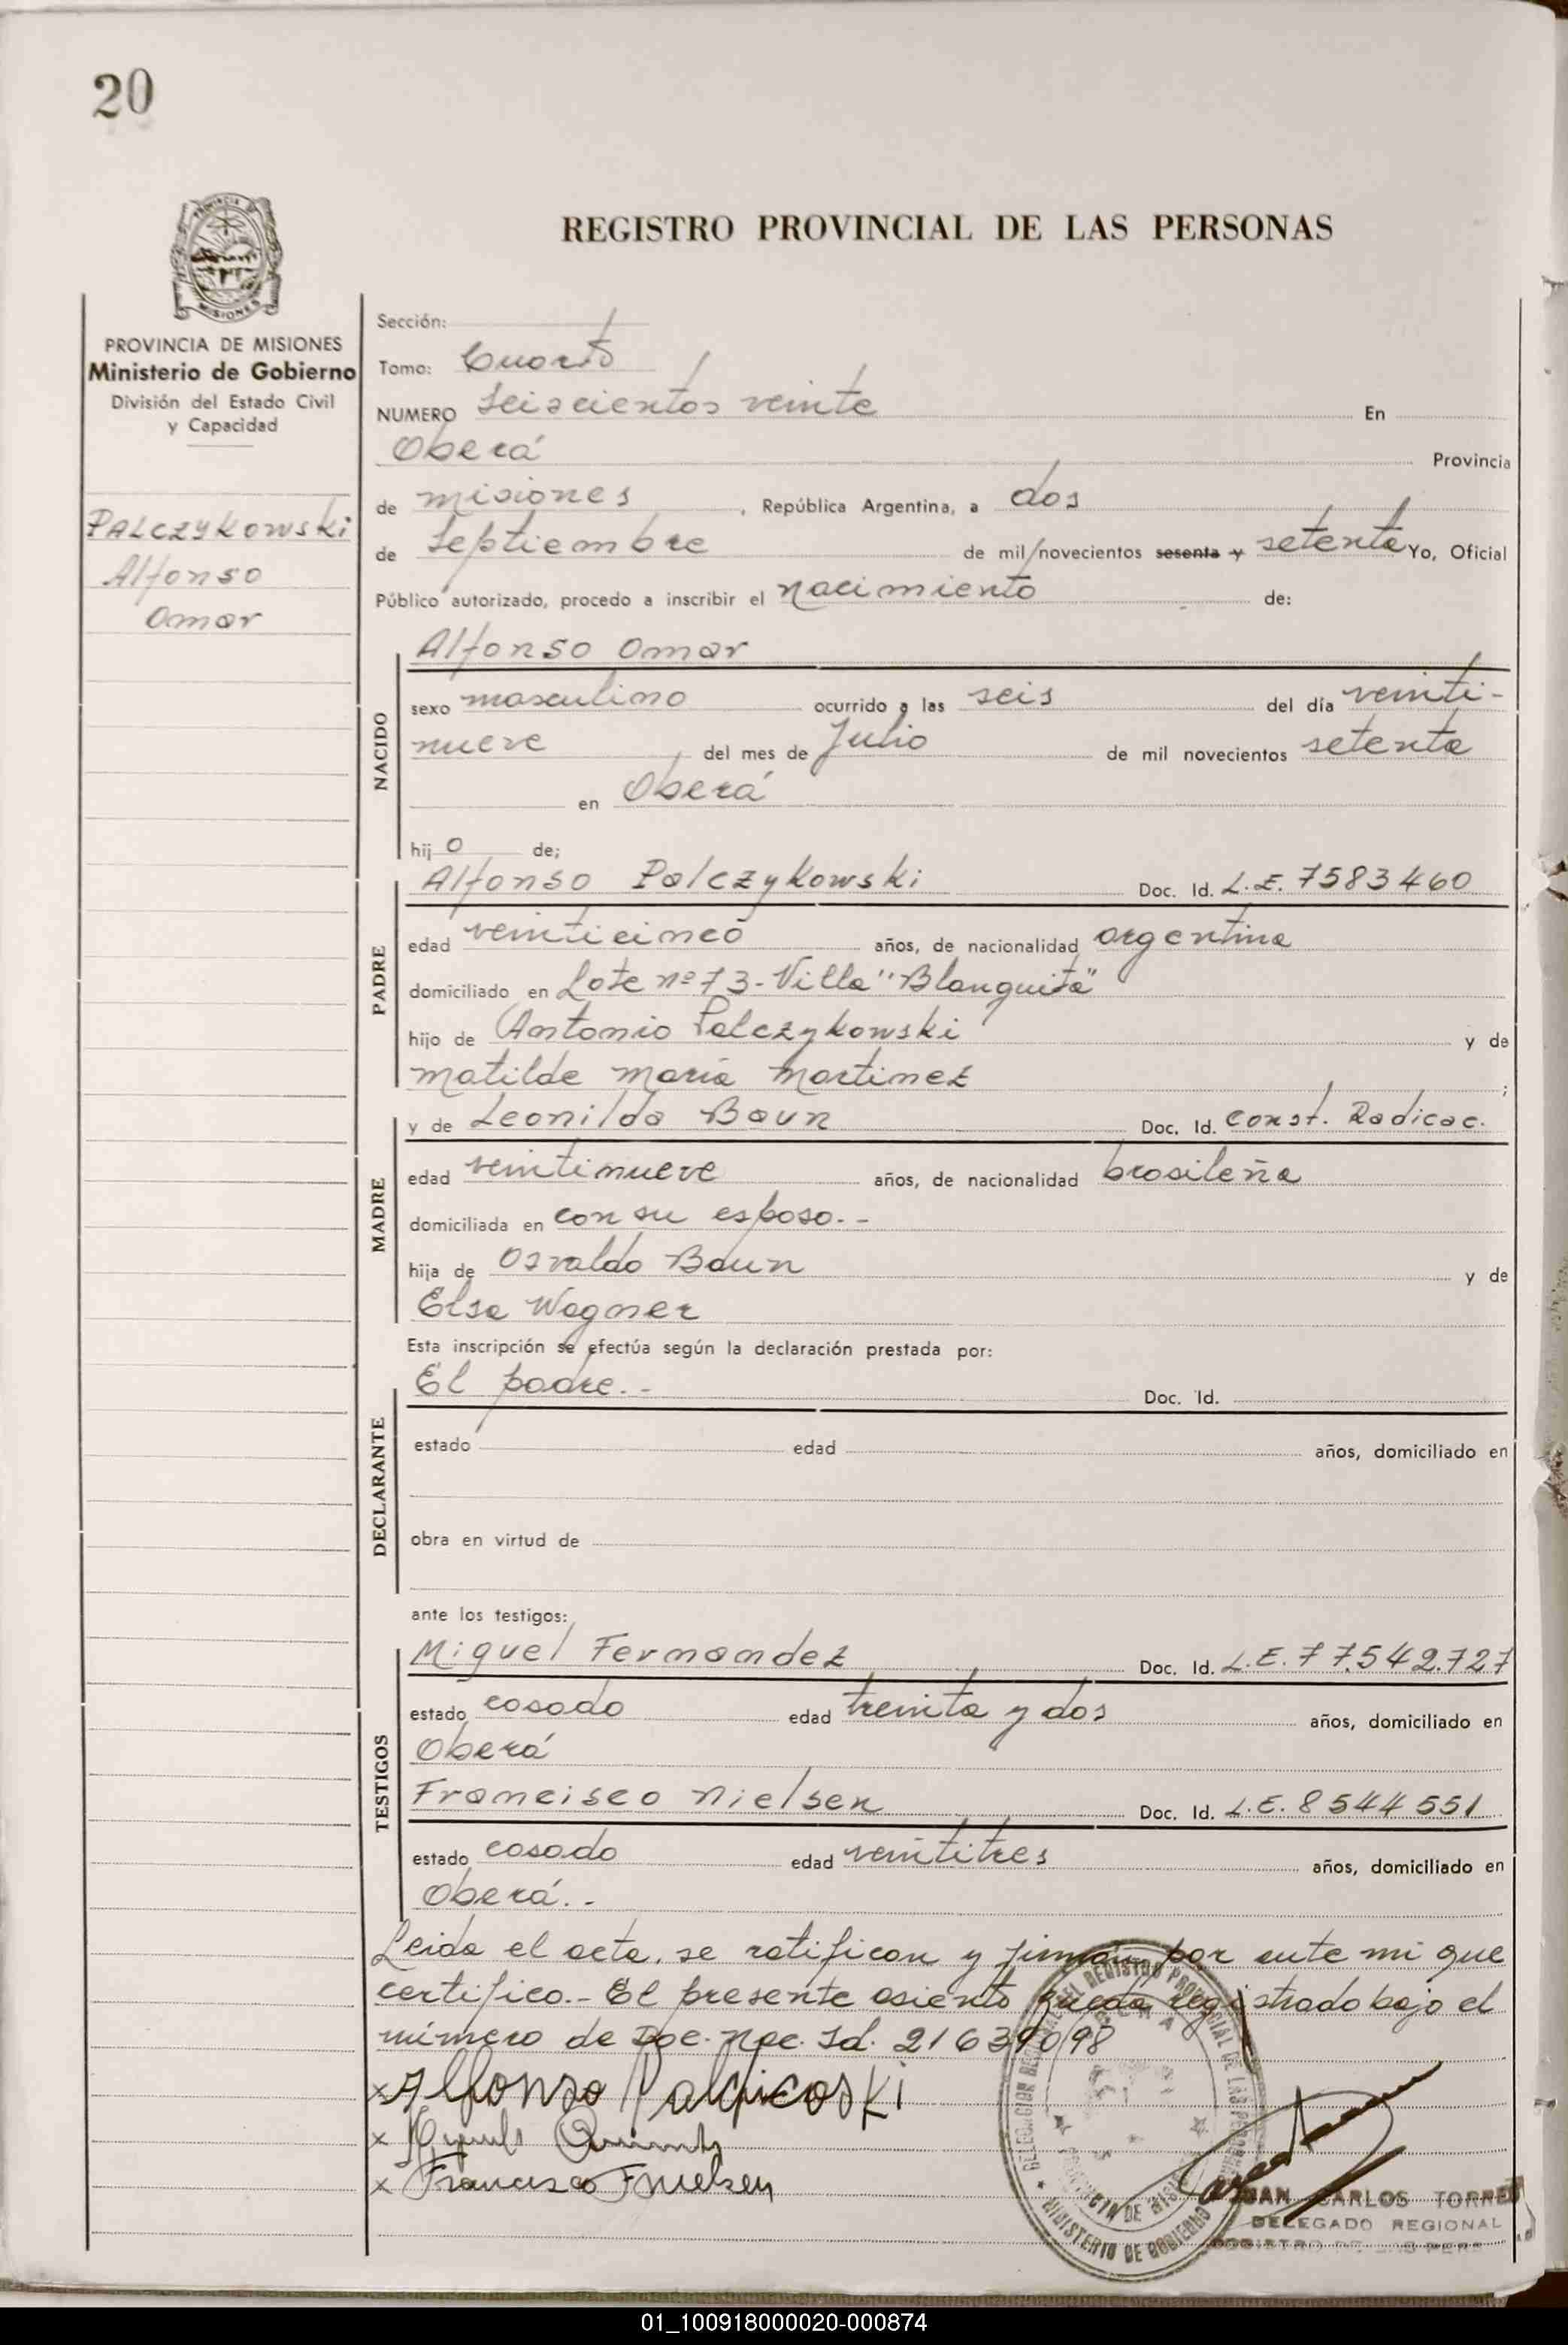 20
REGISTRO PROVINCIAL DE LAS PERSONAS
PROVINCIA DE MISIONES
Ministerio de Gobierno
División del Estado Civil
y Capacidad
PALCZYKOWSKI
Alfonso
Omar
Sección:
Tomo: Cuarto
NUMERO Seiscientos veinte En
Oberá Provincia
de misiones, República Argentina, a dos
de Septiembre de mil novecientos sesenta y setenta Yo, Oficial
Público autorizado, procedo a inscribir el nacimiento de:
Alfonso Omar
NACIDO
sexo masculino ocurrido a las seis del día veinti-
nueve del mes de Julio de mil novecientos setenta
en Oberá
hijo de;
PADRE
Alfonso Palczykowski Doc. Id. L.E. 7583460
edad veinticinco años, de nacionalidad argentina
domiciliado en Lote nº 73 - Villa "Blanquita"
hijo de Antonio Palczykowski y de
Matilde María Martinez ;
MADRE
y de Leonilda Baun Doc. Id. Const. Radicac.
edad veintinueve años, de nacionalidad brasileña
domiciliada en con su esposo.-
hija de Osvaldo Baun y de
Elsa Wagner
Esta inscripción se efectúa según la declaración prestada por:
DECLARANTE
El padre.- Doc. Id.
estado edad años, domiciliado en
obra en virtud de
ante los testigos:
TESTIGOS
Miguel Fernandez Doc. Id. L.E. 77.542.727
estado casado edad treinta y dos años, domiciliado en
Oberá
Francisco Nielsen Doc. Id. L.E. 8544551
estado casado edad veintitres años, domiciliado en
Oberá.-
Leida el acta, se ratifican y firman por ante mi que
certifico.- El presente asiento queda registrado bajo el
número de Doc. Nac. Id. 21639098
x Alfonso
x
x Francisco Nielsen
MINISTERIO DE GOBIERNO
JUAN CARLOS TORRES
DELEGADO REGIONAL
01_100918000020-000874